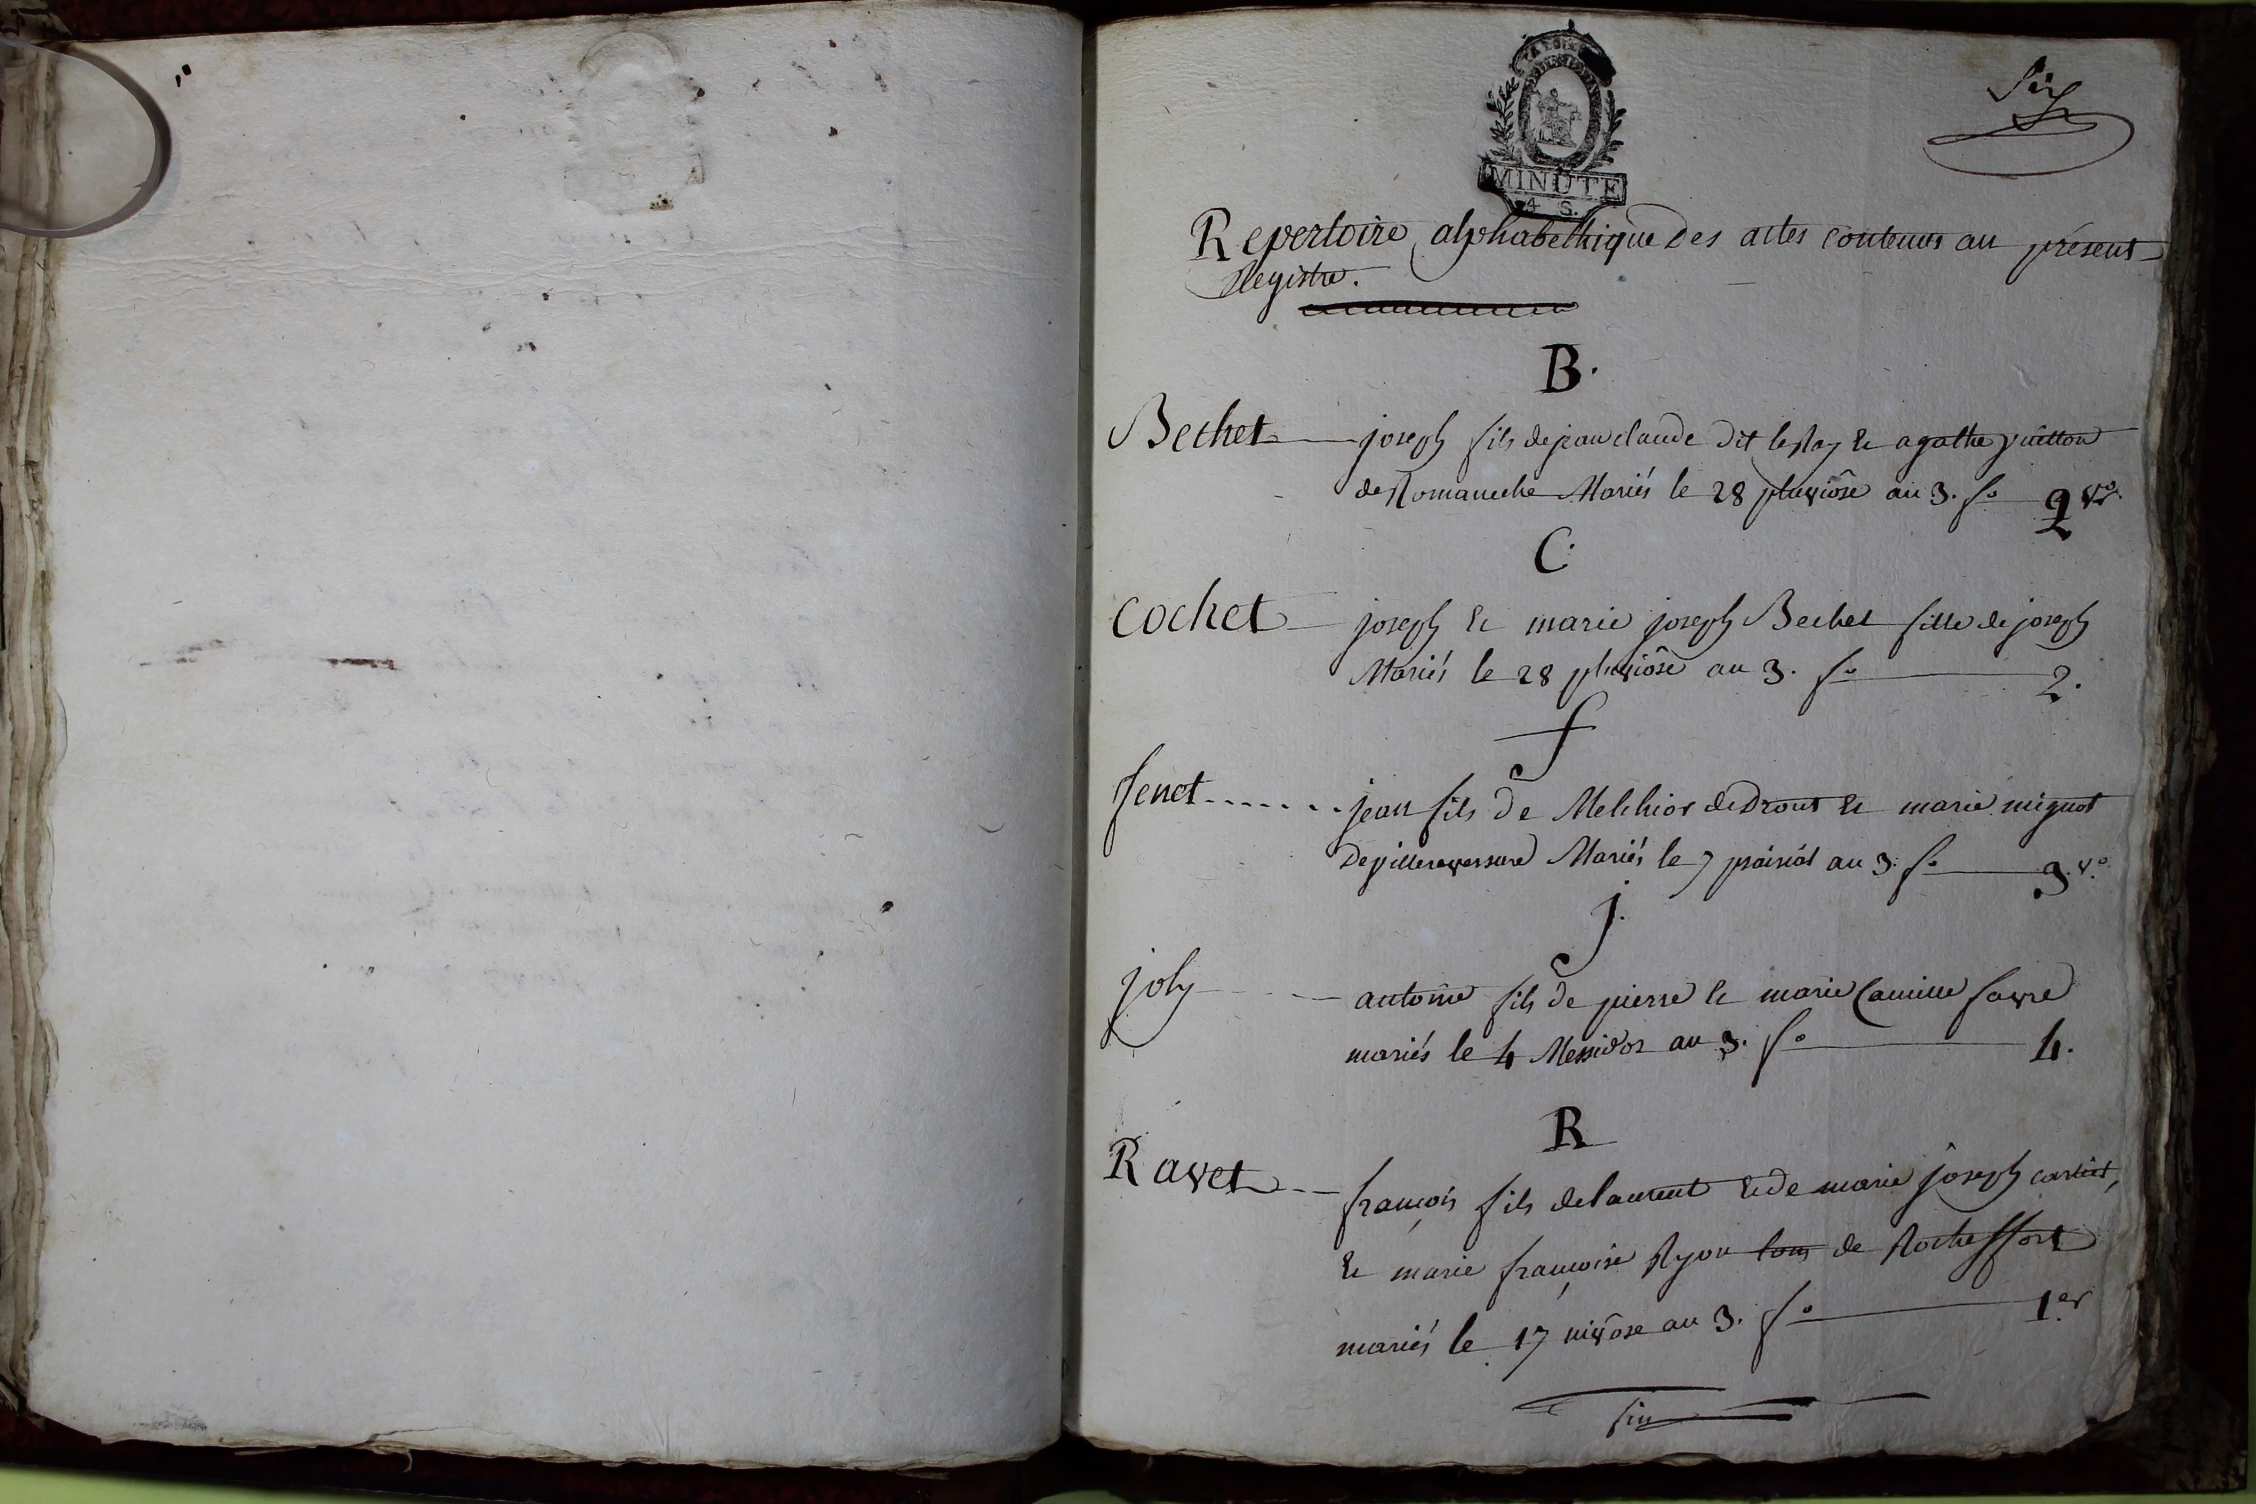 MINUTE
4 S.
Six
Repertoire alphabethique Des actes contenus au présent
Registre.
B.
Bechet joseph fils de jean claude dit le Roy & agathe vuitton
de Romaneche Mariés le 28 pluviôse an 3. fo 2 vo.
C.
Cochet joseph & marie joseph Bechet fille de joseph
Mariés le 28 pluviôse an 3. fo 2.
f
fenet....... jean fils De Melchior de Drout & marie mignot
De villereversure Mariés le 7 prairial an 3. fo 3. vo.
j.
joly antoine fils de pierre & marie Camille favre
mariés le 4 Messidor an 3. fo 4.
R
Ravet françois fils de laurent & de marie joseph
& marie françoise Ryon de Rocheffort
mariés le 17 nivôse an 3. fo 1er
fin